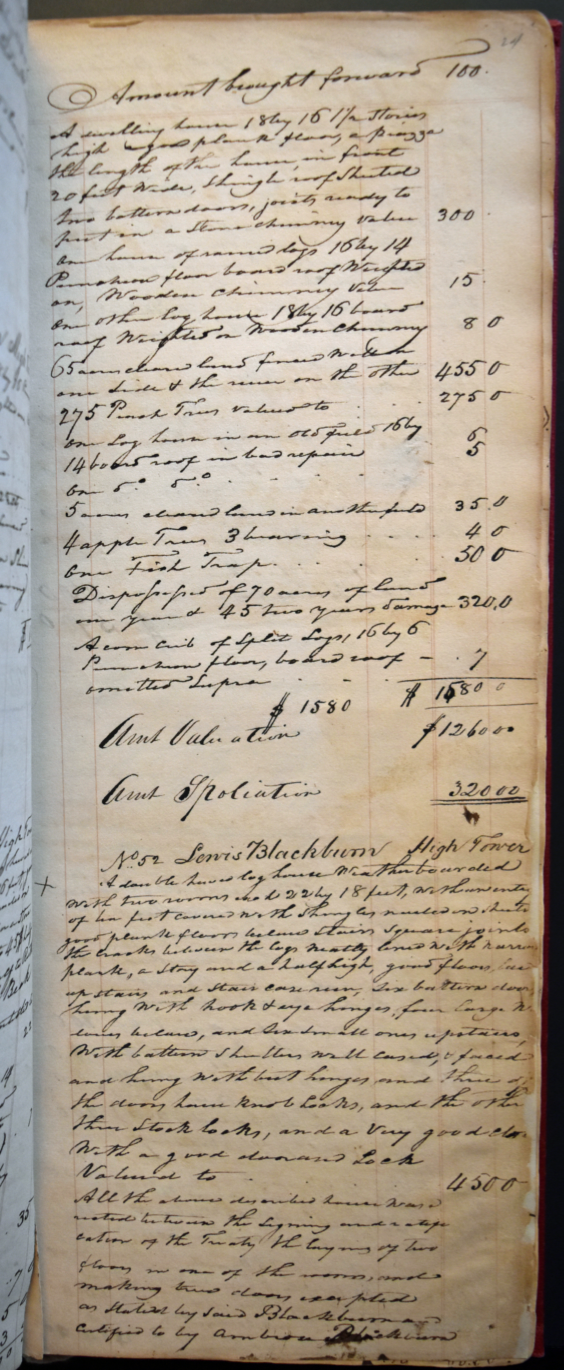 24
Amount brought forward 100.
A dwelling house 18 by 16 1 1/2 stories
high good plank floor, a piazza
the length of the house, in front
20 feet wide, Shingle roof Sheeted
two battern doors, joists ready to
put in a Stone chimney value 300
one house of round logs 16 by 14
Puncheon floor board roof Weighted
on, Wooden Chimney value 15.
one other log house 18 by 16 board
roof Weighted on Wooden Chimney 8 0
65 acres cleard land fenced
one Side & the river on the other 455 0
275 Peach Trees valued to 275 0
one Log house in an old field 16 by
14 board roof in bad repair 6
one Do. Do. 5
5 acres cleard land in another field 35.0
4 apple Trees 3 bearing 4 0
One Fish Trap. 50 0
Dispossessed of 70 acres of land
one year & 45 two years damage 320,0
A corn crib of Split Logs, 16 by 6
Puncheon floor, board roof - 7
omitted Supra
$ 1580 $ 1580 0
Amt Valuation $1260 00
Amt Spoliation 320 00
No. 52 Lewis Blackburn High Tower
+ A double hewed log house Weatherboarded
With two rooms each 22 by 18 feet, with an entry
of ten feet covered with Shingles nailed on Sheets
good plank floors below Stairs Square joints
the cracks between the logs neatly lined with narrow
plank, a Story and a half high, good floors,
up stairs and Stair case run, Six battern doors
hung With hook & eye hinges, four large
below, and Six Small ones upstairs,
With battern Shutters well cased, & faced
and hung With but hinges and three of
the doors have Knob Locks, and the other
three Stock locks, and a Very good
With a good door and Lock
Valued to 450 0
All the above described house was
rected between the Signing and
cation of the Treaty the laying of two
floors in one of the rooms, and
making two doors excepted
as Stated by Said Blackburn
Certified to by Ambrose Blackburn